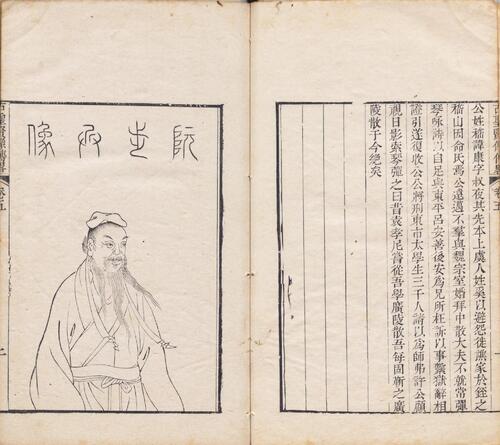 古聖賢像傳略 卷五
公姓嵇諱康字叔夜其先本上虞人姓奚以避怨徙譙家於銍之
嵇山因命氏焉公遠邁不羣與魏宗室婚拜中散大夫不就常彈
琴咏詩以自足與東平呂安善後安為兄所枉訴以事繫獄辭相
證引遂復收公公將刑東市太學生三千人請以為師弗許公顧
視日影索琴彈之曰昔袁孝尼嘗從吾學廣陵散吾每固靳之廣
陵散于今絕矣
阮步兵像
古聖賢像傳略 卷五